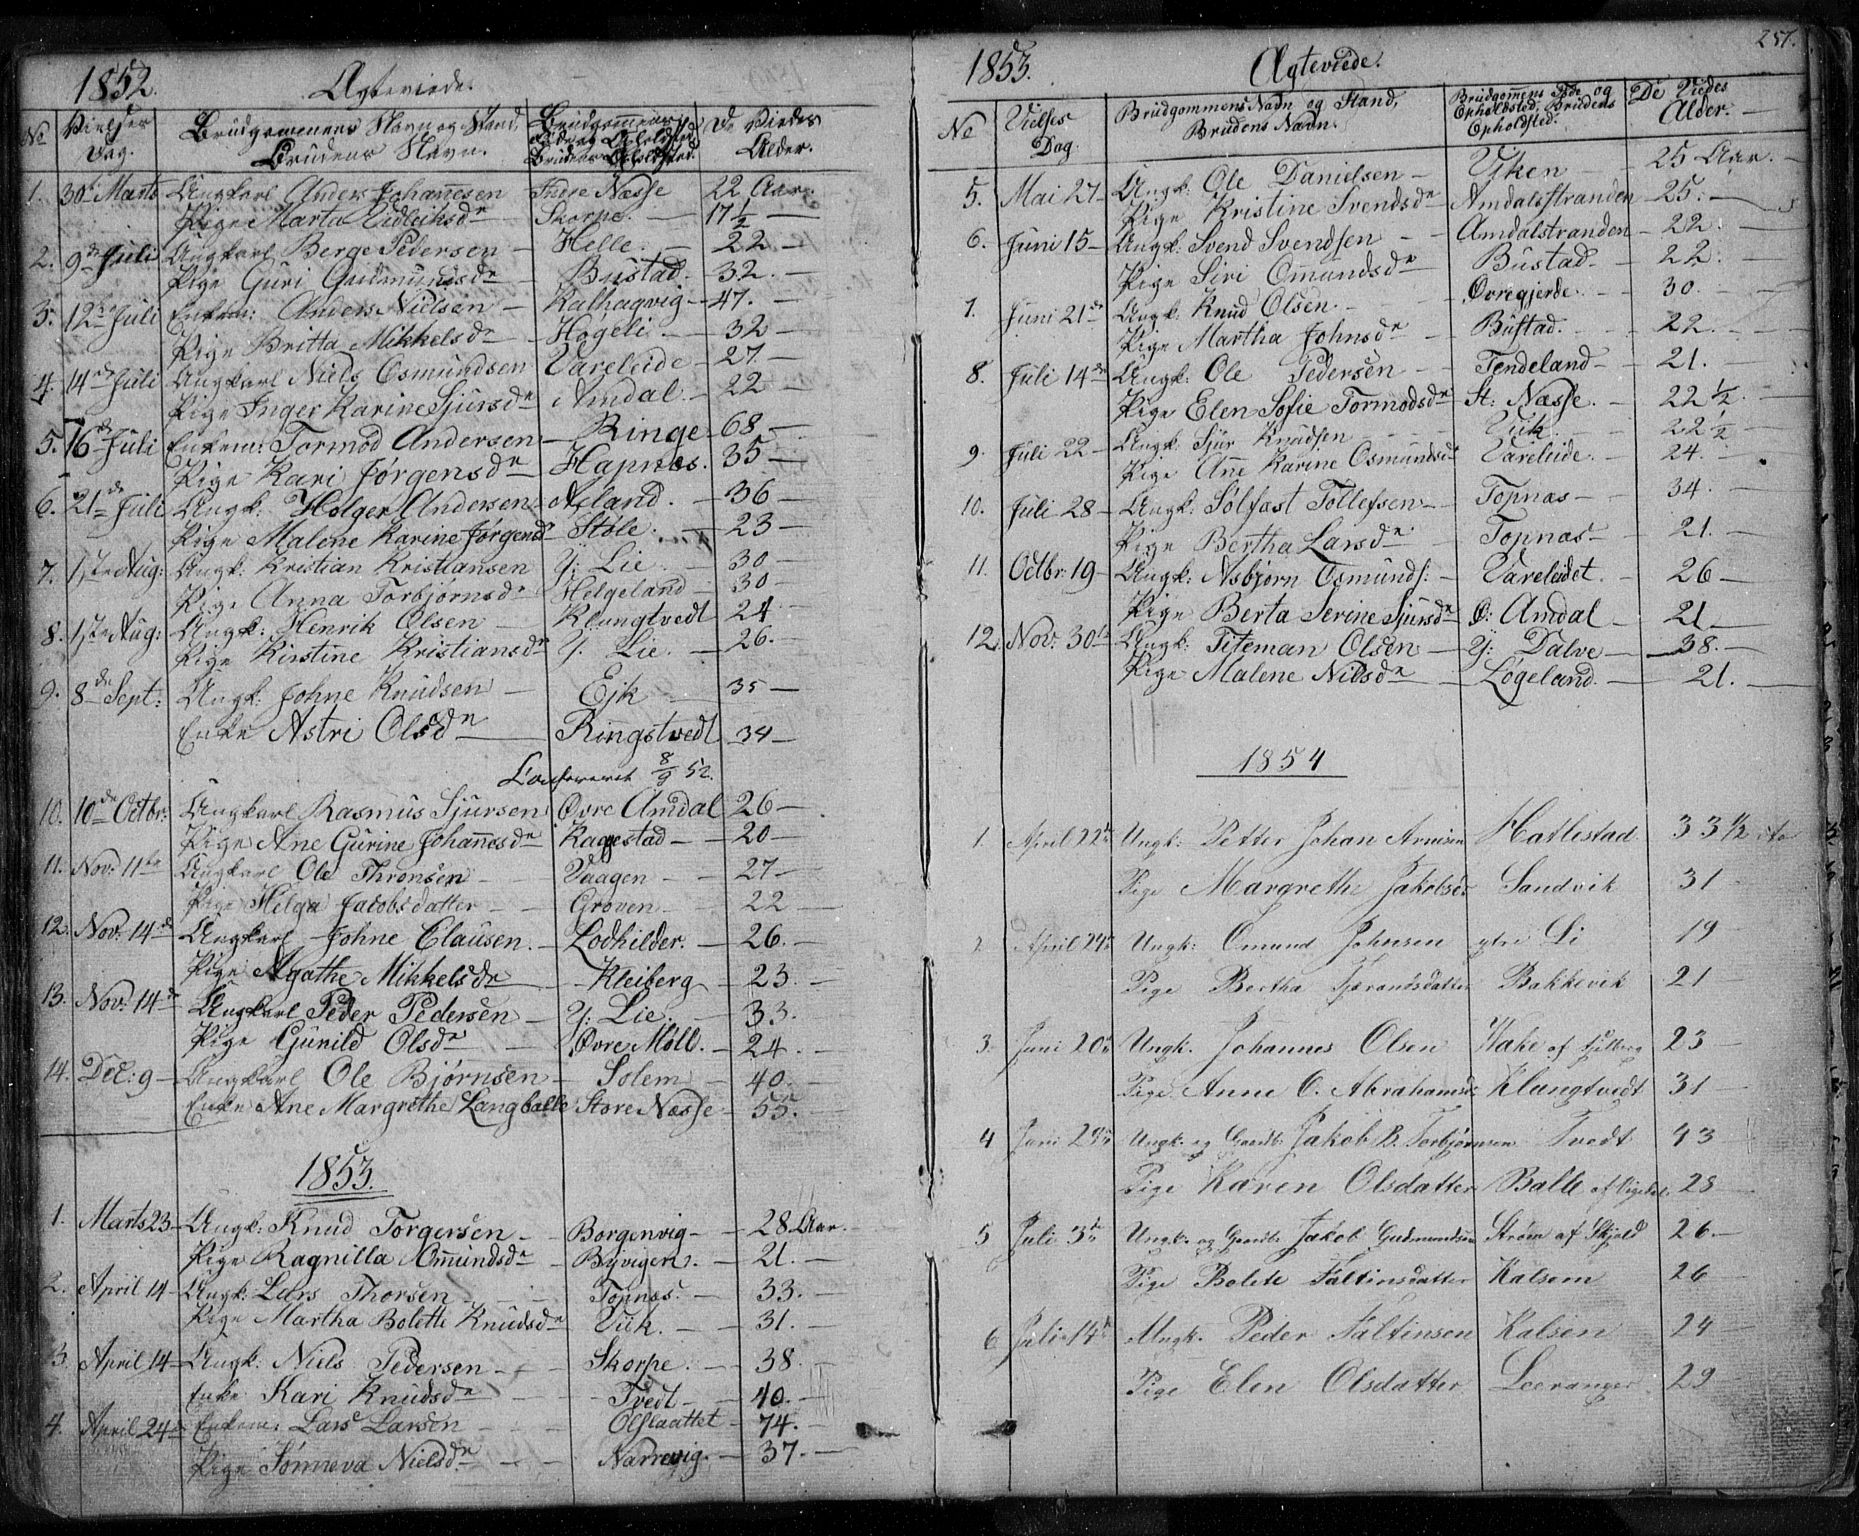 1852. Ægteviede.
No Vielses Dag. Brudgommens Navn og Stand, Brudens Navn. De Viedes Alder.
1. 30te Marts Ungkarl Anders Johannesen Næsse 22 Aar.
Pige Marta Eidleiksdn Skorpe. 17 1/2
2. 9de Juli Ungkarl Berge Pedersen Helle. 22
Pige Guri Gudmundsdn Bustad. 32.
3. 12te Juli Enkem: Anders Nielsen Kalhagvig 47.
Pige Britta Mikkelsdn Hogeli 32
4. 14de Juli Ungkarl Niels Osmundsen Vareleide 27
Pige Inger Karine Sjursdn Amdal 22
5. 16de Juli Enkem: Tormod Andersen Ringe 68
Pige Kari Jørgensdn Hapnes. 35
6. 21de Juli Ungk: Holger Andersen Aeland. 36
Pige Malene Karine Jørgensdn Støle. 23
7. 1ste Aug: Ungk: Kristian Kristiansen Y: Lie. 30
Pige Anna Torbjørnsdn Helgeland 30
8. 1ste Aug: Ungk: Henrik Olsen Klungtvedt 24
Pige Kirstine Kristiansdn Y. Lie. 26.
9. 8de Sept: Ungk: Johne Knudsen Ejk 35
Enke Astri Olsdn Ringstvedt 34
Confereret 8/9 52.
10. 10de Octbr: Ungkarl Rasmus Sjursen Øvre Amdal 26
Pige Ane Gurine Johannesdn Kagestad 20
11. Nov: 11te Ungkarl Ole Thronsen Vaagen 27
Pige Helga Jacobsdatter Groven 22
12. Nov: 14de Ungkarl Johne Clausen. Lodhilder. 26.
Pige Agathe Mikkelsdn Kleiberg 23.
13. Nov. 14de Ungkarl Peder Pedersen Y: Lie. 33.
Pige Gunild Olsdn Øvre Møll. 24.
14. Dec: 9 Ungkarl Ole Bjørnsen Solem 40.
Enke Ane Margrethe Langballe Store Næsse 55.
1853.
1. Marts 23 Ungk: Knud Torgersen Borgenvig 28 Aar.
Pige Ragnilla Amundsdn Byvigen. 21.
2. April 14 Ungk: Lars Thorsen Topnæs. 33.
Pige Martha Bolette Knudsdn Viik. 31.
3. April 14 Ungk: Niels Pedersen Skorpe. 38.
Enke Kari Knudsdn Tvedt 40.
4. April 24de Enkem: Lars Larsen Olslaattet 74.
Pige Sønneva Nielsdn Narrevig. 37.
257.
1853. Ægteviede.
No Vielses Dag. Brudgommens Navn og Stand, Brudens Navn. Brudgommens Føde og Opholdsted, Brudens Opholdsted. De Viedes Alder.
5. Mai 27 Ungk: Ole Danielsen Viken 25 Aar.
Pige Kristine Svendsdn Amdalsstranden 25.
6. Juni 15 Ungk: Svend Svendsen Amdalstranden 22.
Pige Siri Omundsdn Bustad 22.
7. Juni 21de Ungk: Knud Olsen. Øvregjerde. 30.
Pige Martha Johnsdn Bustad. 22.
8. Juli 14de Ungk: Ole Pedersen Tendeland 21.
Pige Elen Sofie Tormodsdn St: Næsse. 22 1/2.
9. Juli 22 Ungk: Sjur Knudsen Viik. 22 1/2
Pige Ane Karine Osmundsdn Vareleide. 24.
10. Juli 28 Ungk: Sølfast Tollefsen Topnæs 34.
Pige Bertha Larsdn Topnæs 21.
11. Octbr: 19 Ungk: Asbjørn Osmunds: Vareleidet. 26
Pige Berta Serine Sjursdn Ø: Amdal 21
12. Nov: 30te Ungk: Titeman Olsen Y: Dalve 38.
Pige Malene Nilsdn Løgeland. 21.
1854
1. April 22de Ungk: Petter Johan Arnisen Hatlestad 33 1/2
Pige Margrethe Jakobsdr Sandvik 31
2. April 24de Ungk: Omund Johnsen ytre Li 19
Pige Bertha Tjerandsdatter Bakkevik 21
3. Juni 20de Ungk. Johannes Olsen Wake af 23
Pige Anne O. Abrahamsd: Klungtvedt 31
4 Juni Ungk: og Gaardb: Jakob B. Torbjørnsen Tvedt 43
Pige Karen Olsdatter Balle 28
5 Juli 3de Ungk: og Gaardb: Jakob Gudmundsen Strøm af Skjold 26.
Pige Bolete Faltinsdatter Kalsem 26
6 Juli 14de Ungk. Peder Faltinsen Kalsem 24
Pige Elen Olsdatter Leeranger 29